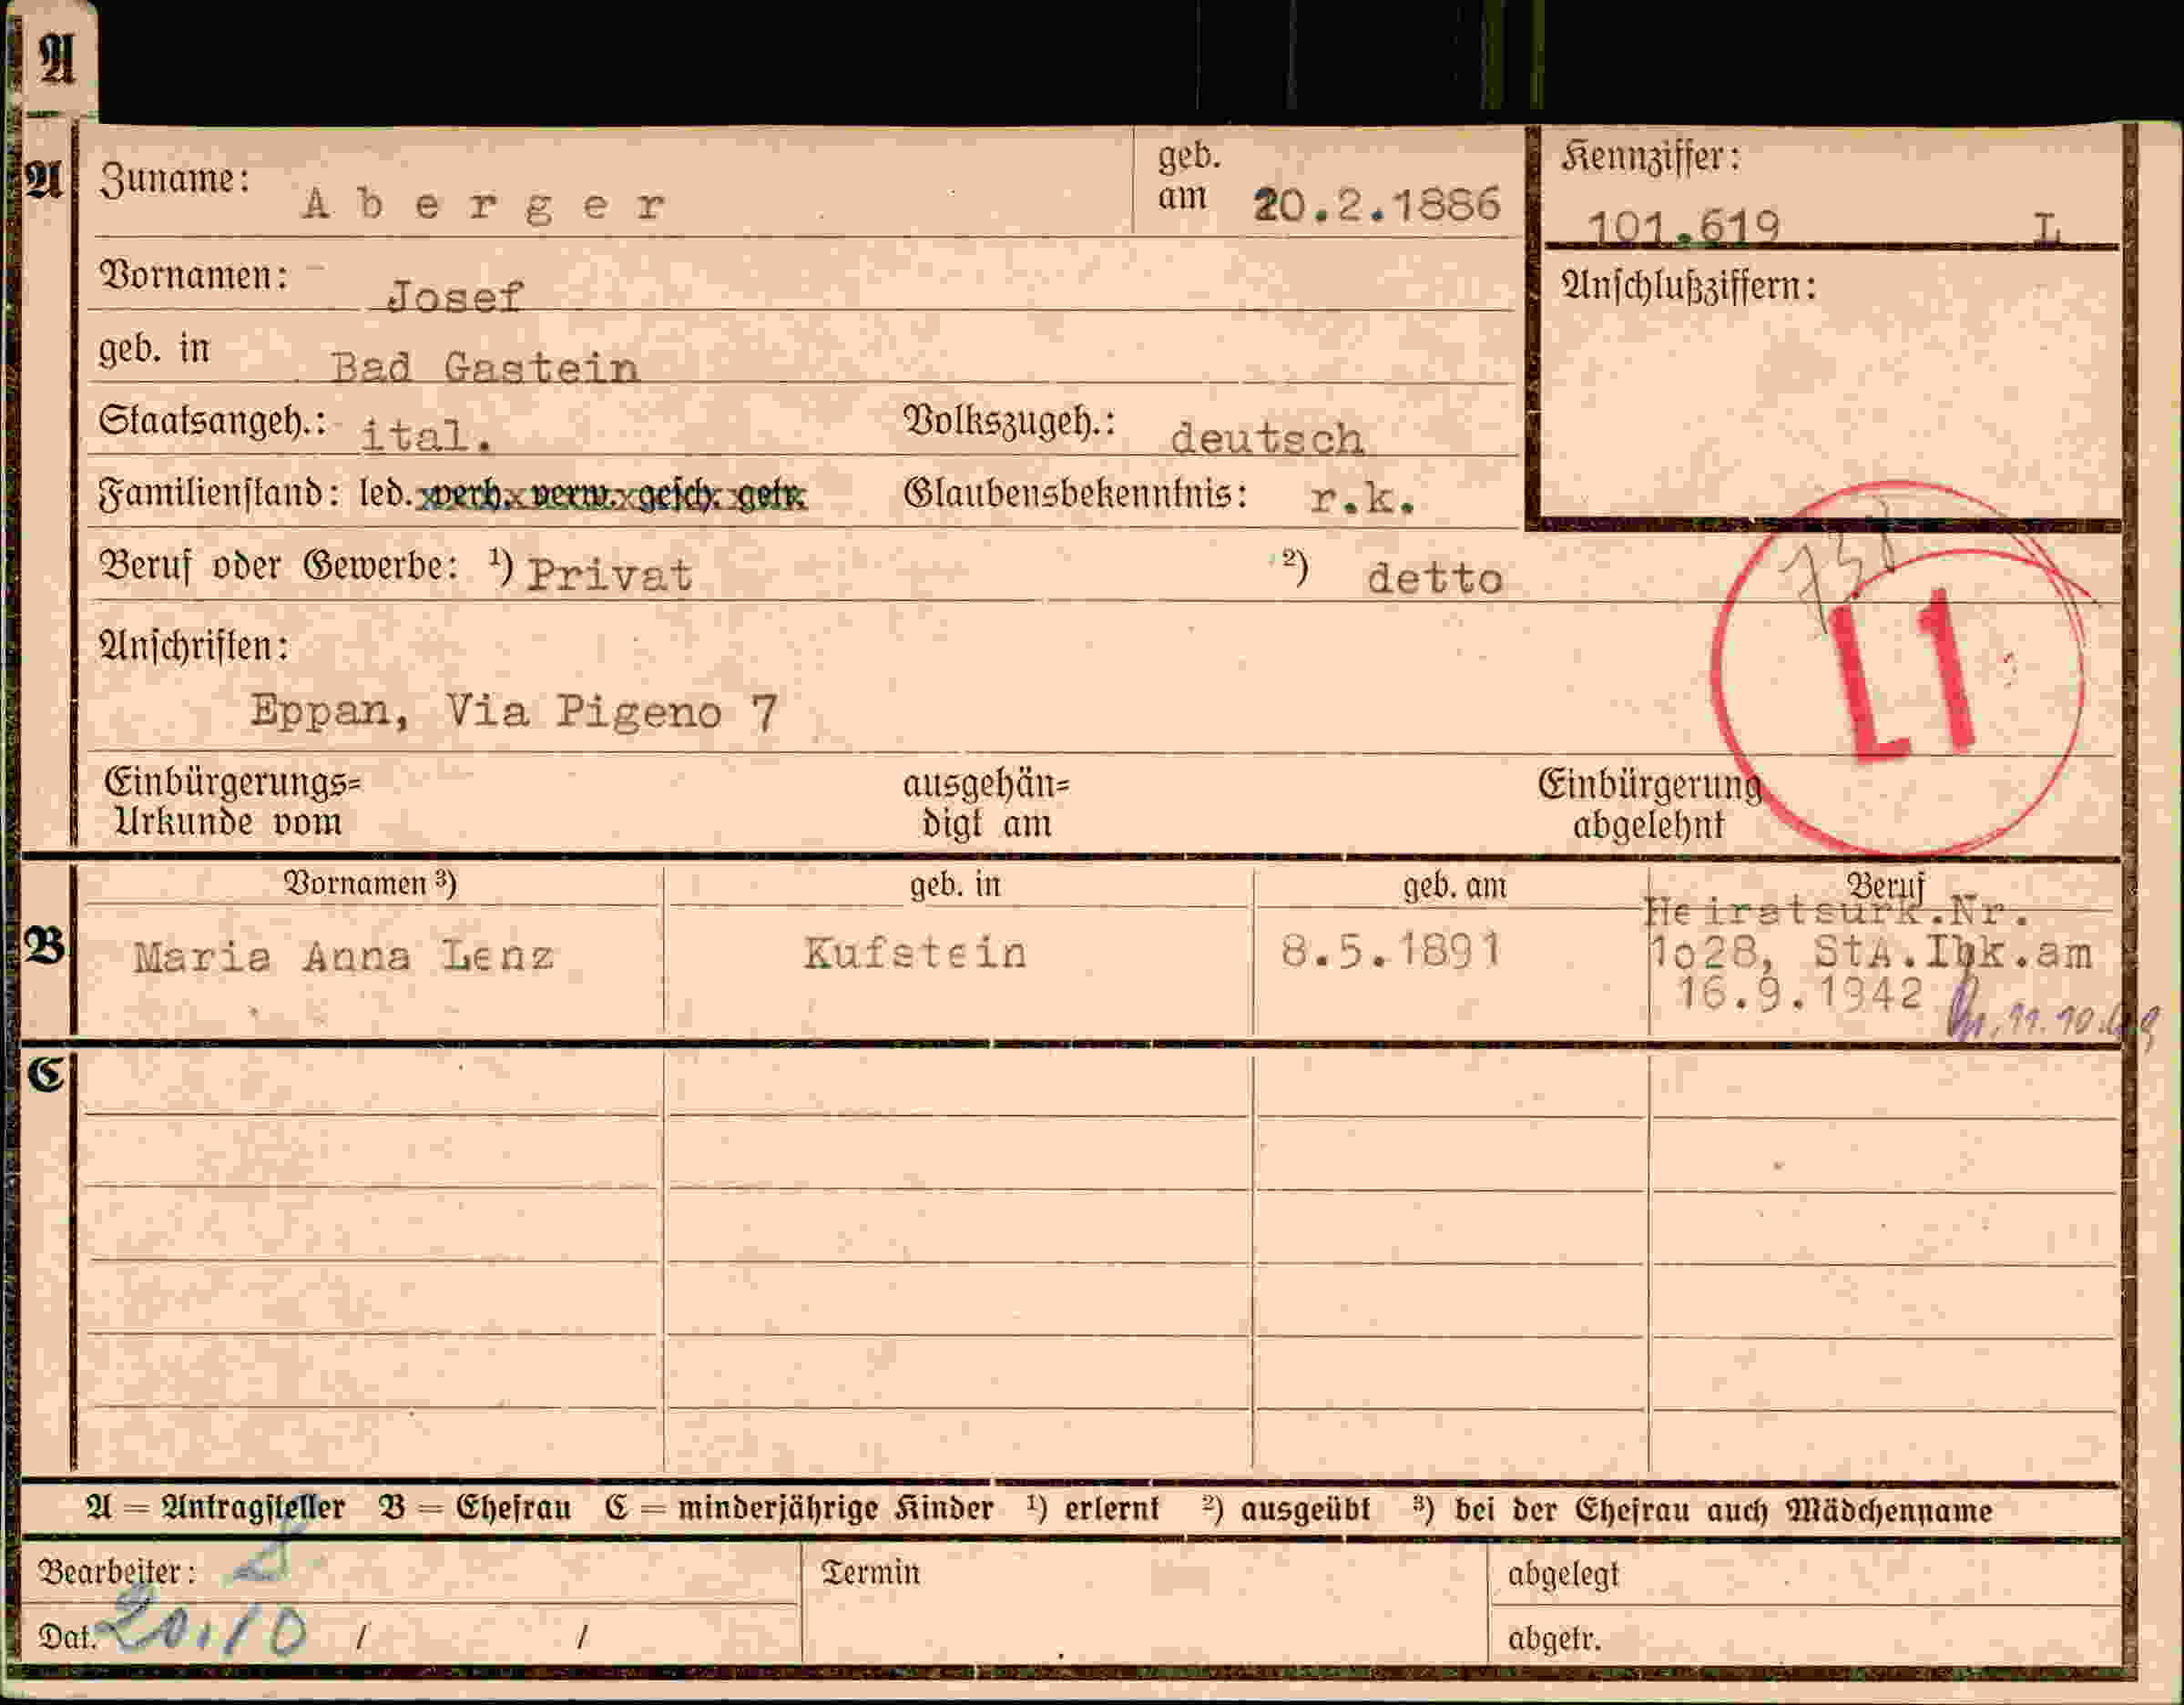 A
A Zuname: Aberger geb. am 20.2.1886 Kennziffer:
101.619 L
Vornamen: Josef Anschlußziffern:
geb. in Bad Gastein
Staatsangeh.: ital. Volkszugeh.: deutsch
Familienstand: led. verh. verw. gesch. getr. Glaubensbekenntnis: r.k.
Beruf oder Gewerbe: ¹) Privat ²) detto
L1
Anschriften:
Eppan, Via Pigeno 7
Einbürgerungs= ausgehän= Einbürgerung
Urkunde vom digt am abgelehnt
Vornamen ³) geb. in geb. am Beruf
Heiratsurk.Nr.
B Maria Anna Lenz Kufstein 8.5.1891 1o28, StA.Ibk.am
16.9.1942
11.10.49
C
A = Antragsteller B = Ehefrau C = minderjährige Kinder ¹) erlernt ²) ausgeübt ³) bei der Ehefrau auch Mädchenname
Bearbeiter: Termin abgelegt
Dat. 20.10 / / abgetr.